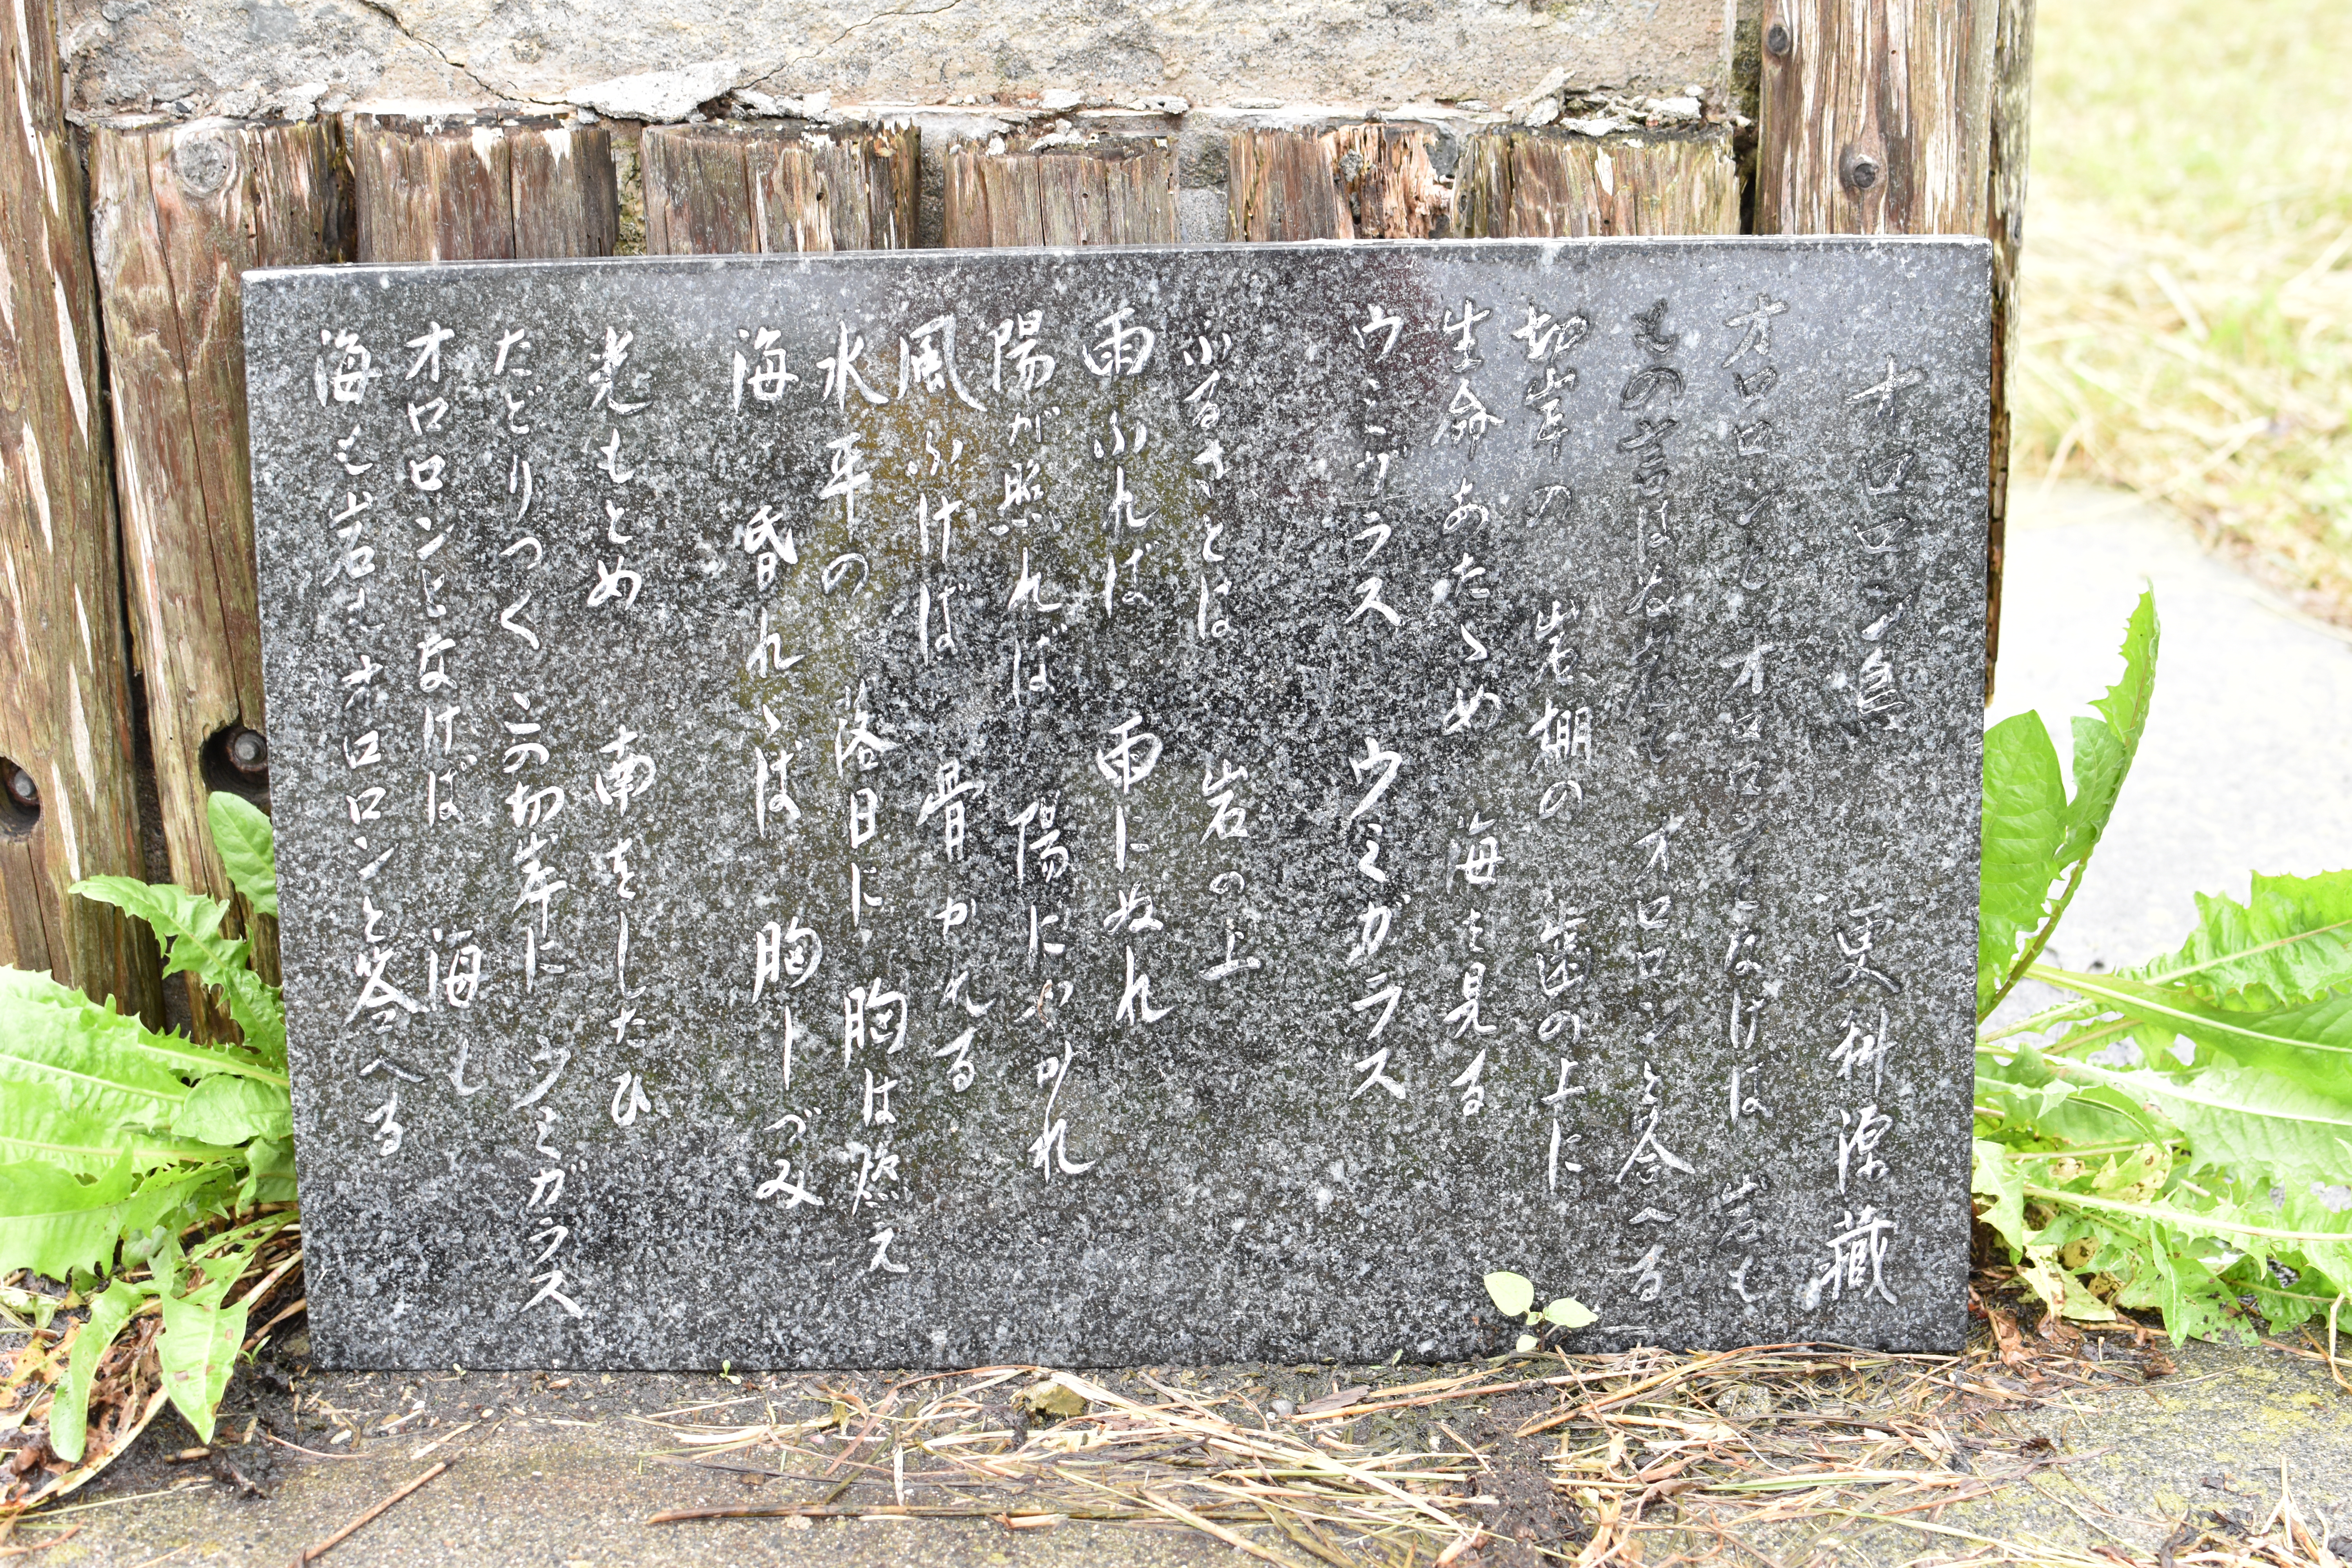 オロロン鳥 更科源藏
オロロンとオロロンとなけば 岩も
もの言はねど オロロンと答へる
切岸の 岩棚の 歯の上に
生命あたゝめ 海を見る
ウミガラス ウミガラス
ふるさとは 岩の上
雨ふれば 雨にぬれ
陽が照れば 陽にやかれ
風ふけば 骨かれる
水平の 落日に 胸は燃え
海 昏れゝば 胸しづみ
光もとめ 南をしたひ
たどりつく この切岸に ウミガラス
オロロンとなけば 海も
海も岩も オロロンと答へる